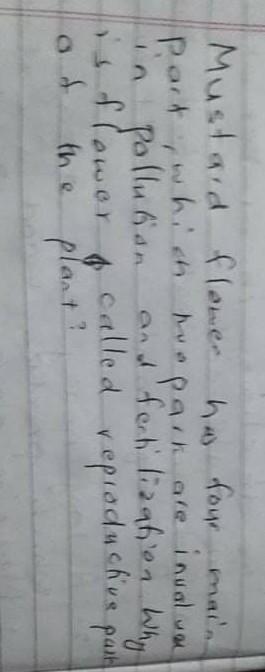 Mustard flower has four main
part, which two part are involve
in pollution and fertilization why
is flower called reproductive part
of the plant?